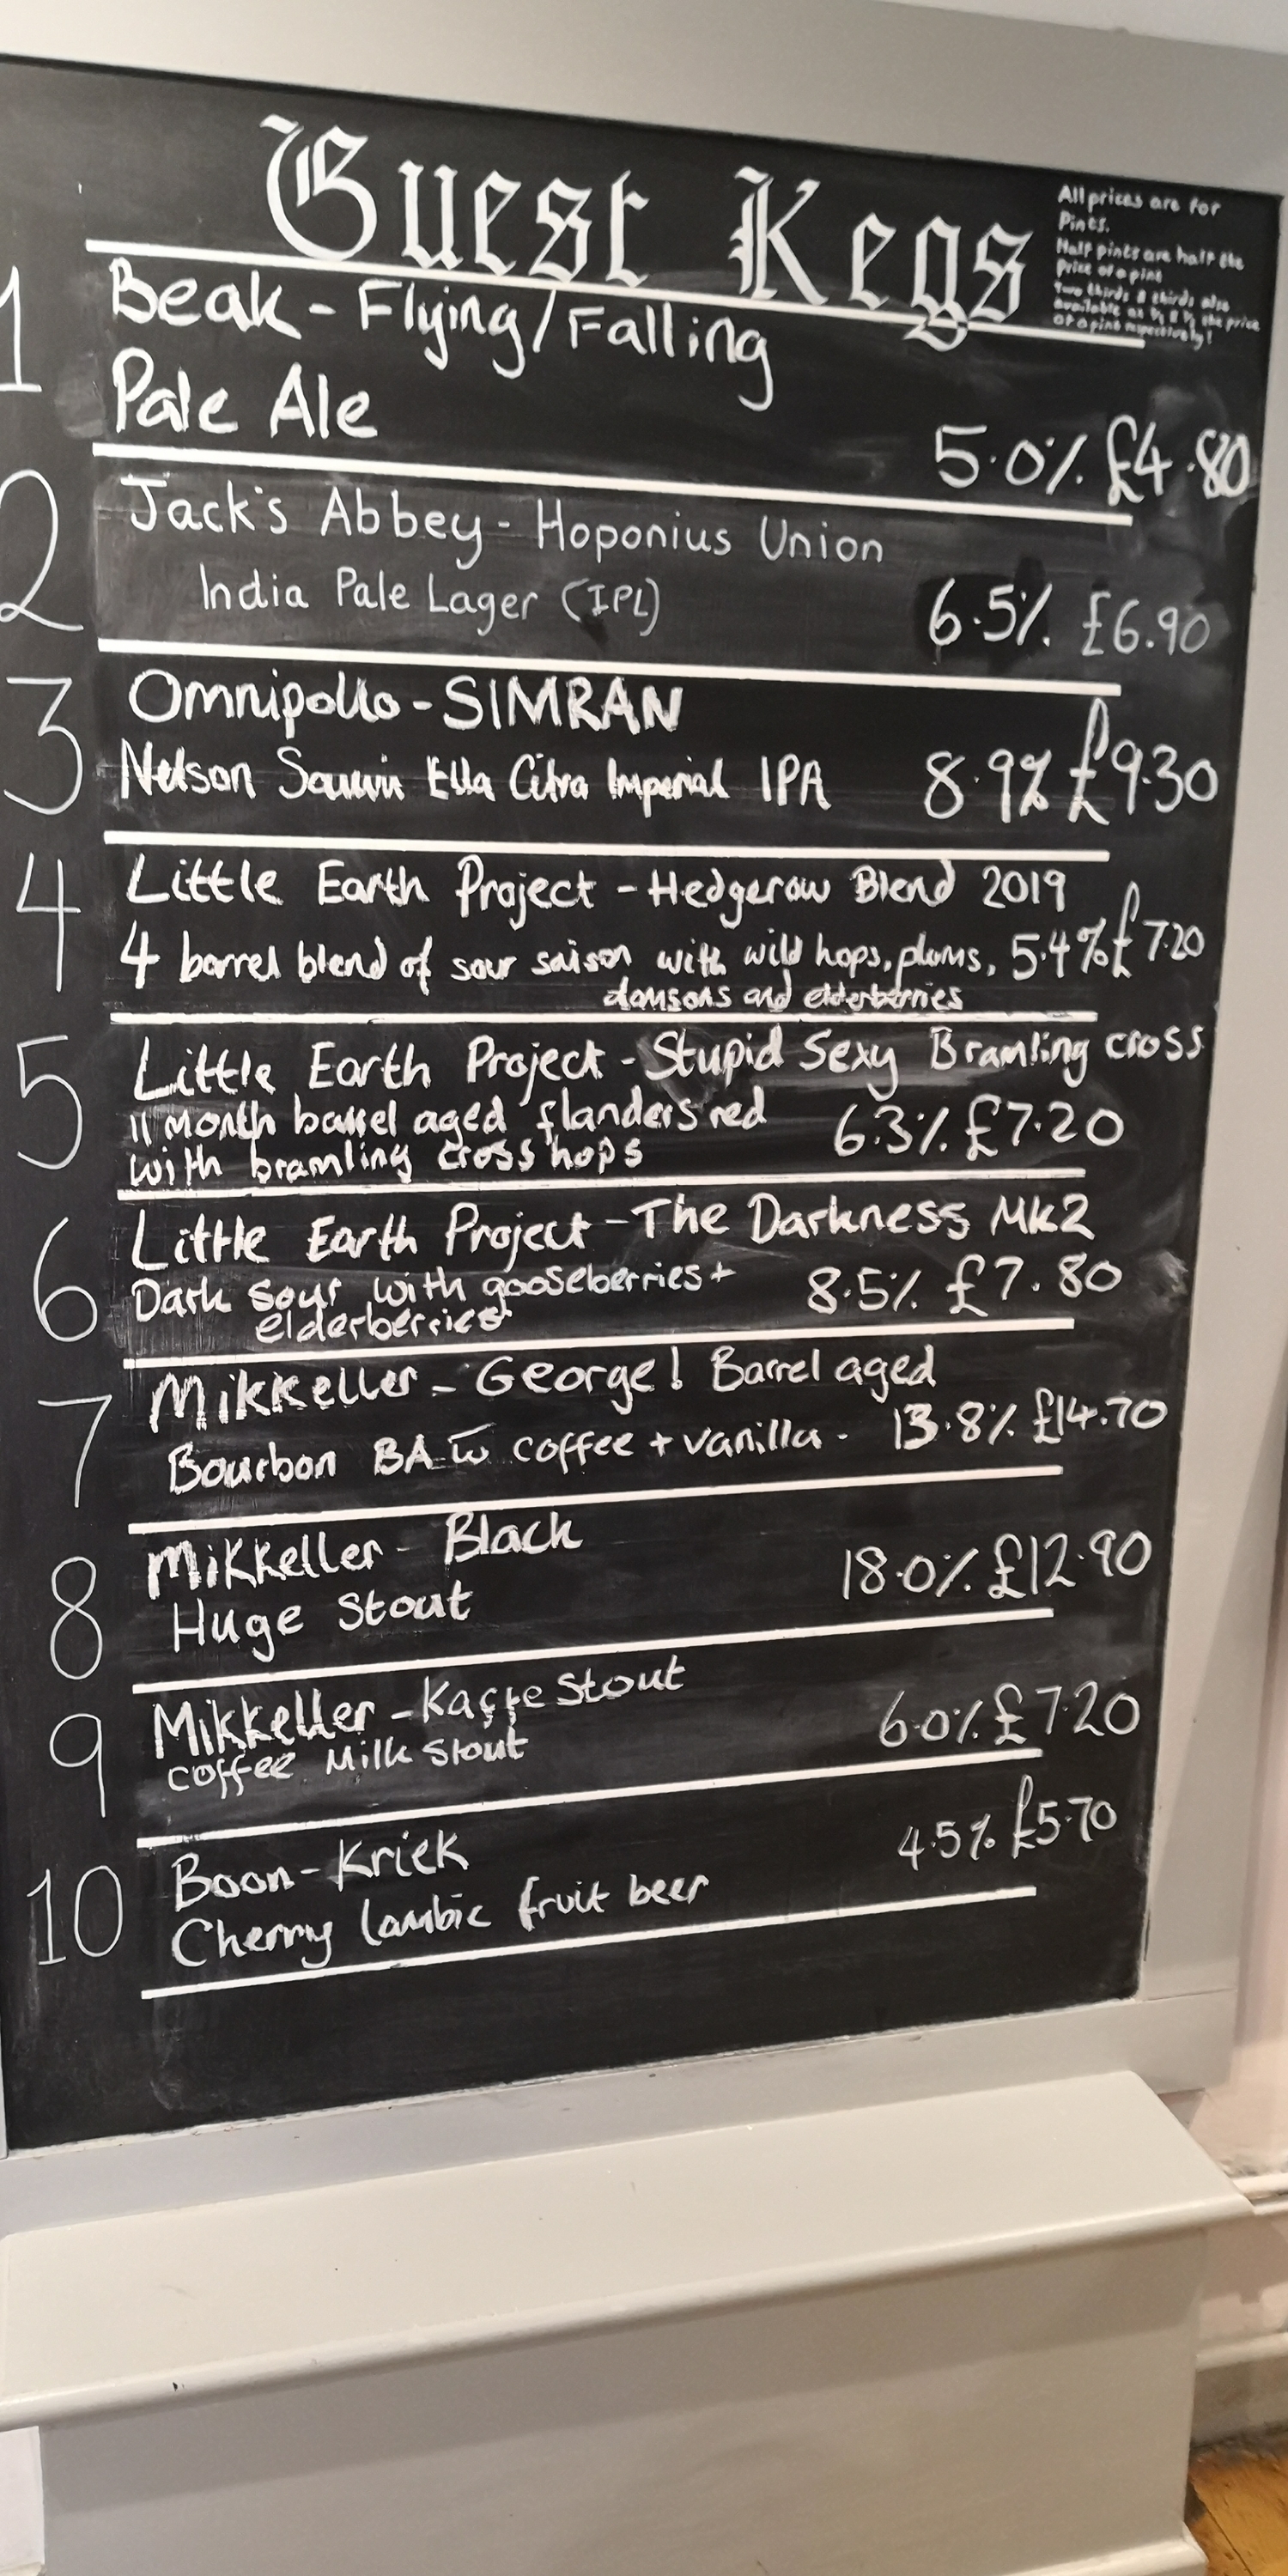 Guest Kegs
All prices are for
Pints.
Half pints are half the
Price of a pint
Two thirds & thirds also
available as ⅔ & ⅓ the price
of a pint respectively!
1
Beak - Flying/Falling
Pale Ale
5.0% £4.80
2
Jack's Abbey - Hoponius Union
India Pale Lager (IPL)
6.5% £6.90
3
Omnipollo - SIMRAN
Nelson Sauvin Ella Citra Imperial IPA 8.9% £9.30
4
Little Earth Project - Hedgerow Blend 2019
4 barrel blend of sour saison with wild hops, plums, 5.4% £7.20
damsons and elderberries
5
Little Earth Project - Stupid Sexy Bramling cross
11 Month barrel aged flanders red 6.3% £7.20
with bramling cross hops
6
Little Earth Project - The Darkness Mk2
Dark sour with gooseberries + 8.5% £7.80
elderberries
7
Mikkeller - George! Barrel aged
Bourbon BA w̅ coffee + vanilla - 13.8% £14.70
8
Mikkeller - Black
Huge Stout
18.0% £12.90
9
Mikkeller - Kaffe Stout
coffee Milk Stout
6.0% £7.20
10
Boon - Kriek
Cherry lambic fruit beer
4.5% £5.70